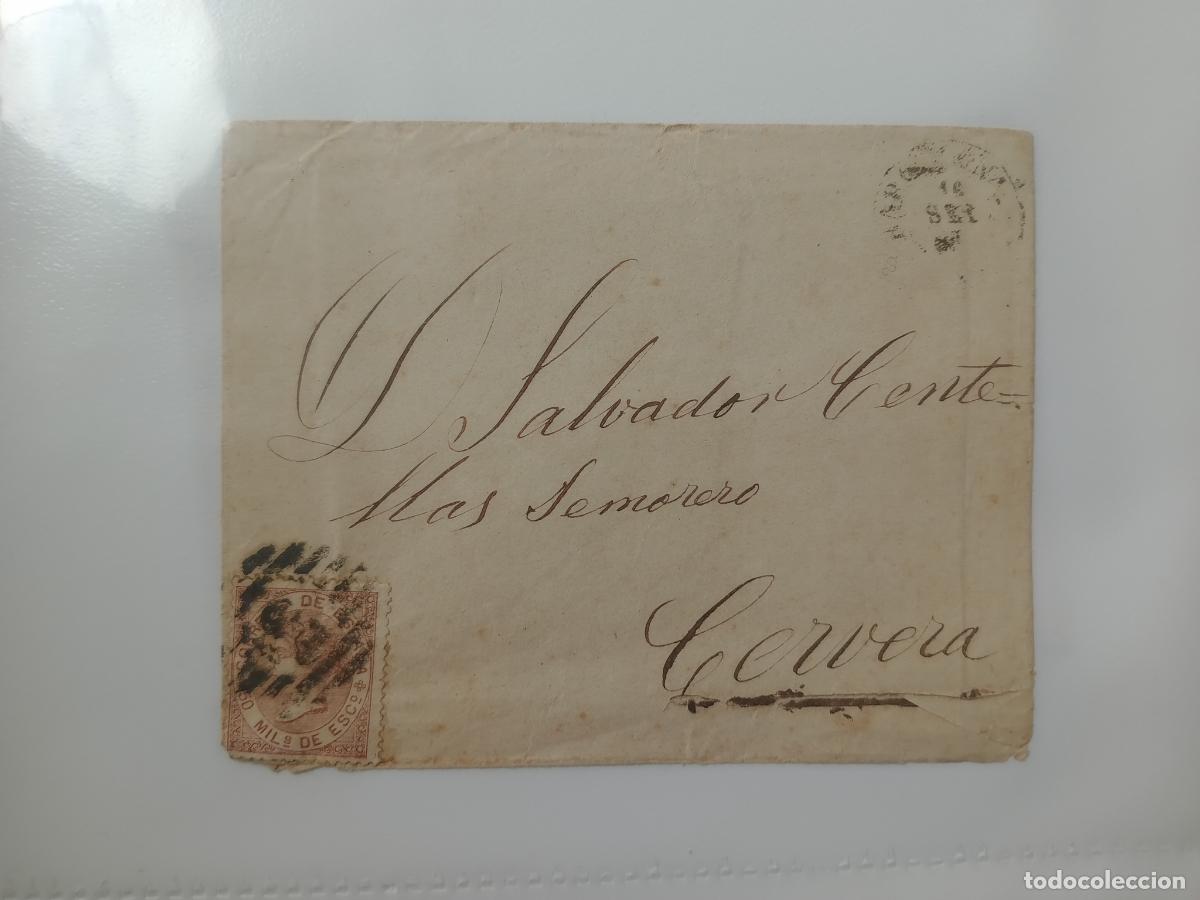 BARCELONA
SET
D Salvador Cente=
llas Semorero
Cervera
DE
MILS DE ESCO
todocoleccion